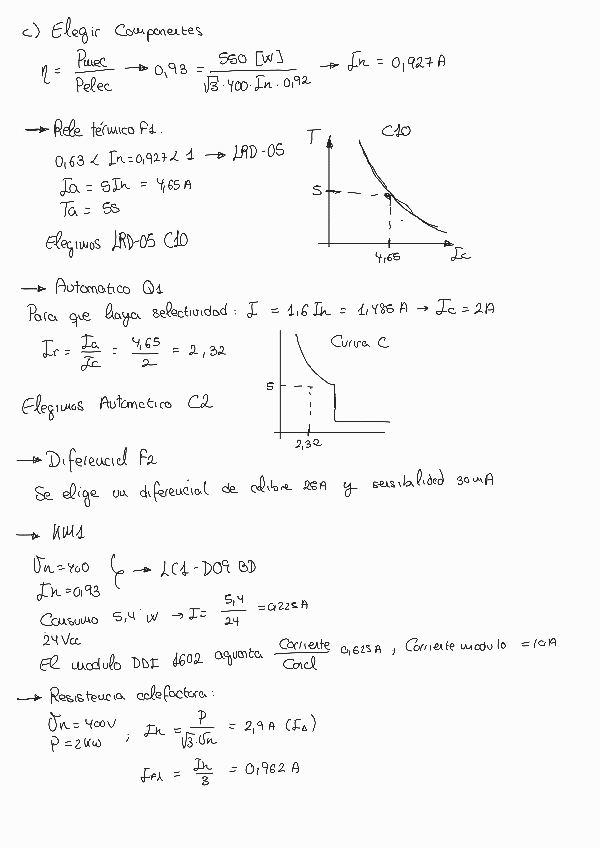 c) Elegir Componentes
η = Pmec / Pelec → 0,93 = 550 [W] / √3·400·In·0,92 → In = 0,927 A
→ Rele térmico F1.
0,63 < In=0,927 < 1 → LRD-05
Ia = 5In = 4,65A
Ta = 5s
Elegimos LRD-05 C10
T C10
5
4,65 Ic
→ Automatico Q1
Para que haya selectividad: I = 1,6 In = 1,485A → Ic = 2A
Ir = Ia / Ic = 4,65 / 2 = 2,32
Curva C
5
2,32
Elegimos Automatico C2
→ Diferencial F2
Se elige un diferencial de calibre 25A y sensibilidad 30mA
→ KM1
Un=400
In=0,93
→ LC1-D09 BD
Consumo 5,4 W → I= 5,4 / 24 = 0,225A
24Vcc
El modulo DDI 1602 aguanta Corriente / Canal 0,625A, Corriente modulo = 10A
→ Resistencia calefactora:
Un = 400V
P = 2kW
; In = P / √3·Un = 2,9 A (IΔ)
= In / 3 = 0,962 A